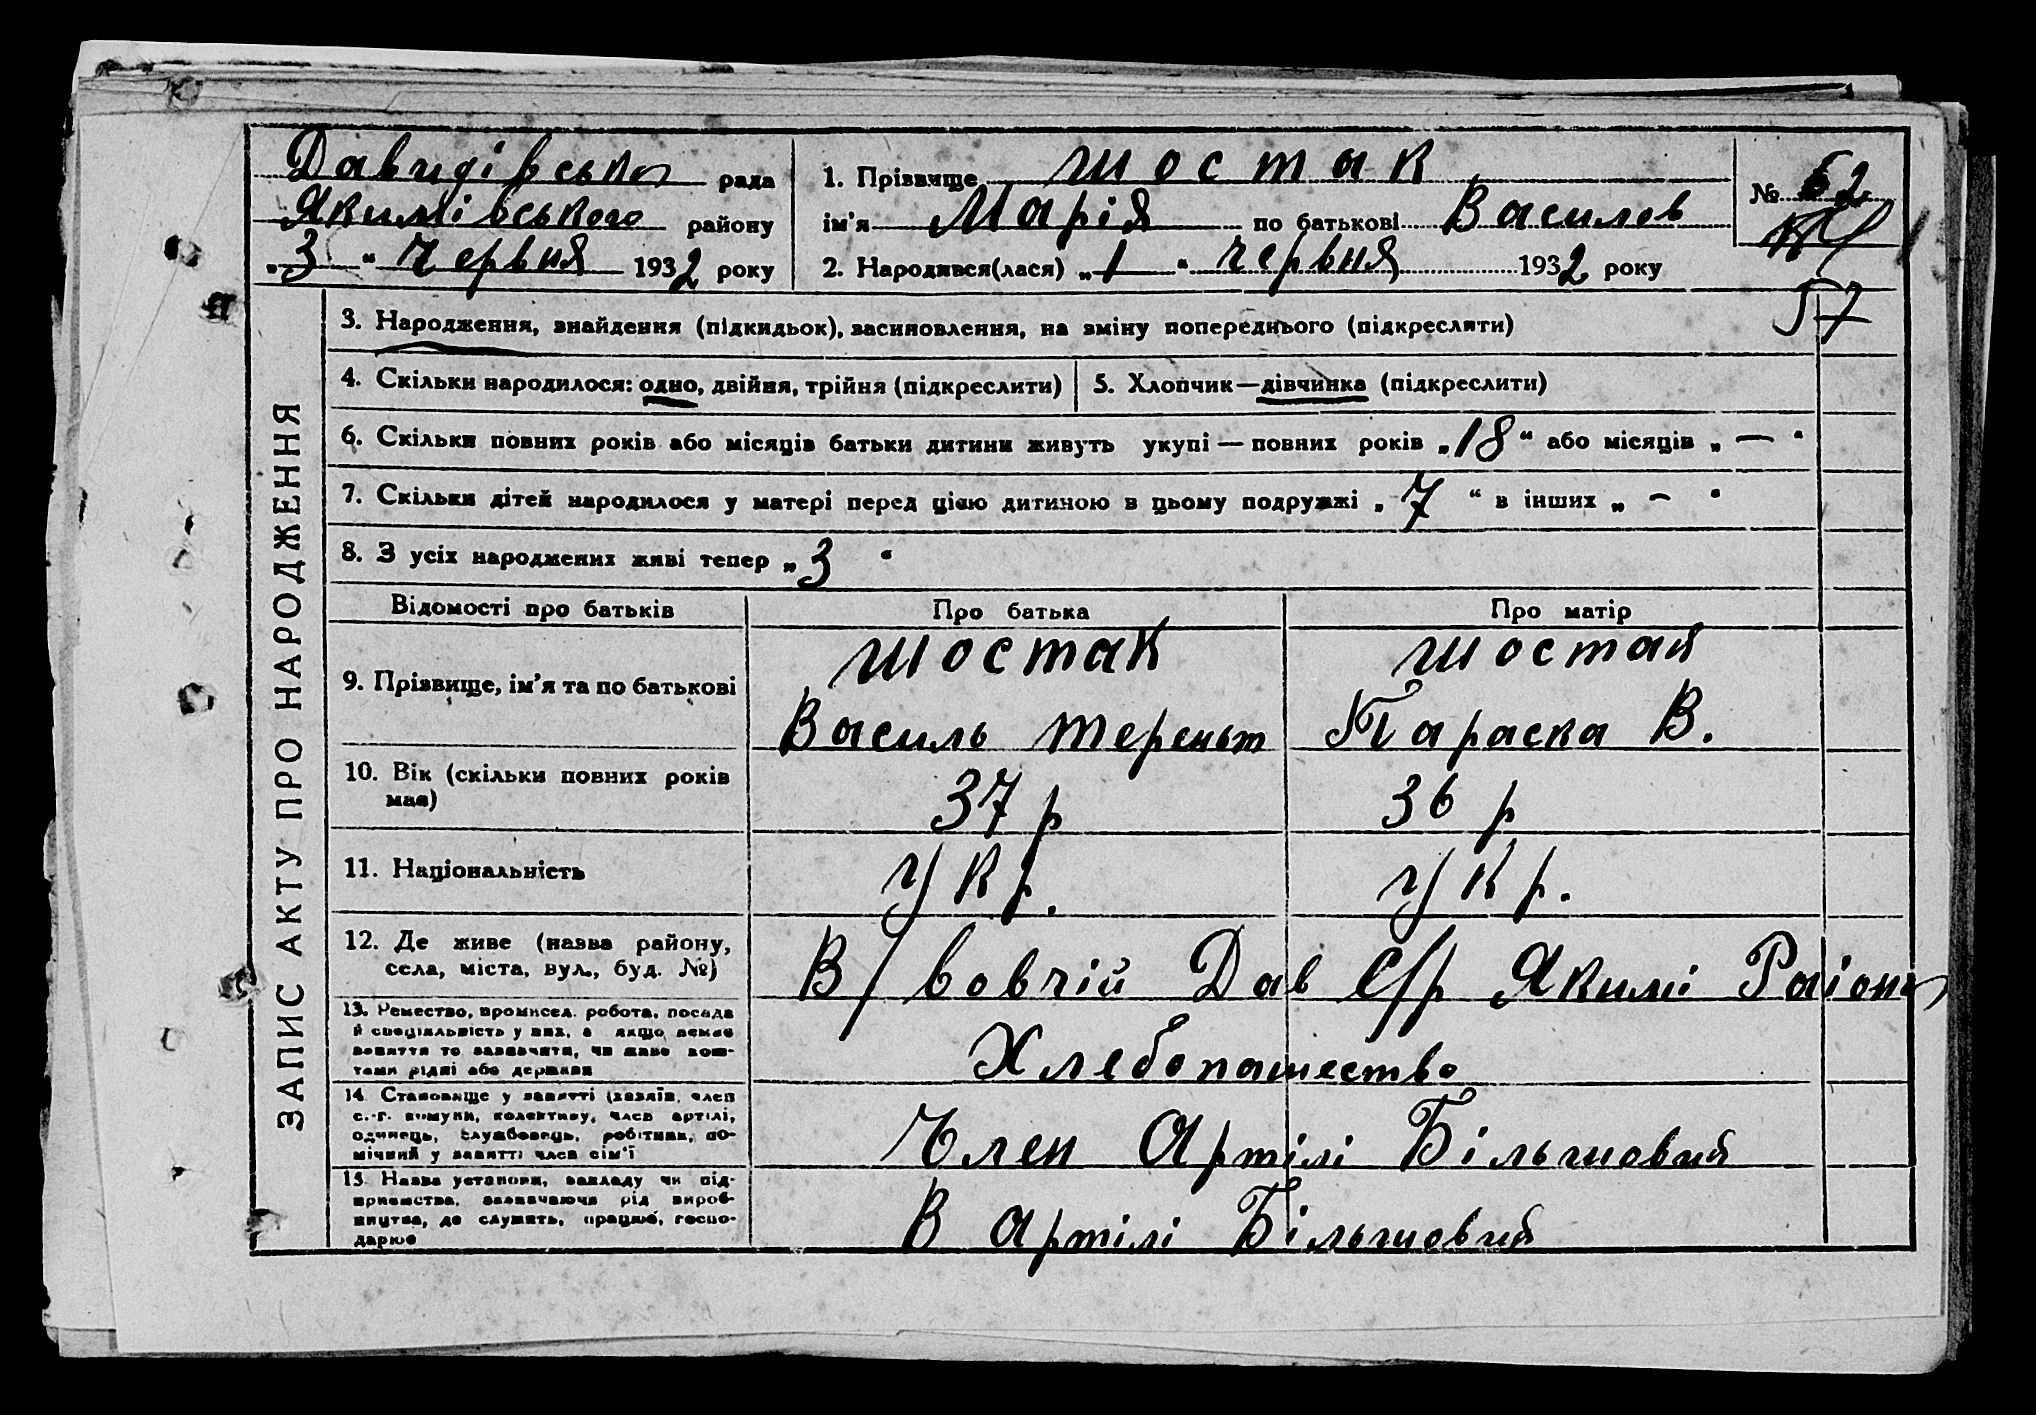 Давидівська рада
Якимівського району
„3“ Червня 1932 року
1. Прізвище Шостак
ім'я Марія по батькові Василев
2. Народився(лася) „1“ червня 1932 року
№ 62
57
ЗАПИС АКТУ ПРО НАРОДЖЕННЯ
3. Народження, знайдення (підкидьок), засиновлення, на зміну попереднього (підкреслити)
4. Скільки народилося: одно, двійня, трійня (підкреслити)
5. Хлопчик—дівчинка (підкреслити)
6. Скільки повних років або місяців батьки дитини живуть укупі — повних років „18“ або місяців „—“
7. Скільки дітей народилося у матері перед цією дитиною в цьому подружжі „7“ в інших „—“
8. З усіх народжених живі тепер „3“
Відомості про батьків Про батька Про матір
9. Прізвище, ім'я та по батькові
Шостак
Василь Тереньт
Шостак
Параска В.
10. Вік (скільки повних років
має)
37 р
36 р
11. Національність
укр.
укр.
12. Де живе (назва району,
села, міста, вул., буд. №)
В/Вовчій Дав С/р Якимі Району
13. Ремество, промисел, робота, посада
й спеціяльність у них, а якщо немає
заняття то зазначити, чи живе кош-
тами рідні або держави
Хлебопашество
14. Становище у занятті (хазяїн, член
с.-г. комуни, колективу, член артілі,
одинець, службовець, робітник, по-
мічний у занятті член сім'ї
Член Артілі Більшовий
15. Назва установи, закладу чи під-
приємства, зазначаючи рід вироб-
ництва, де служить, працює, госпо-
дарює
В Артілі Більшовий